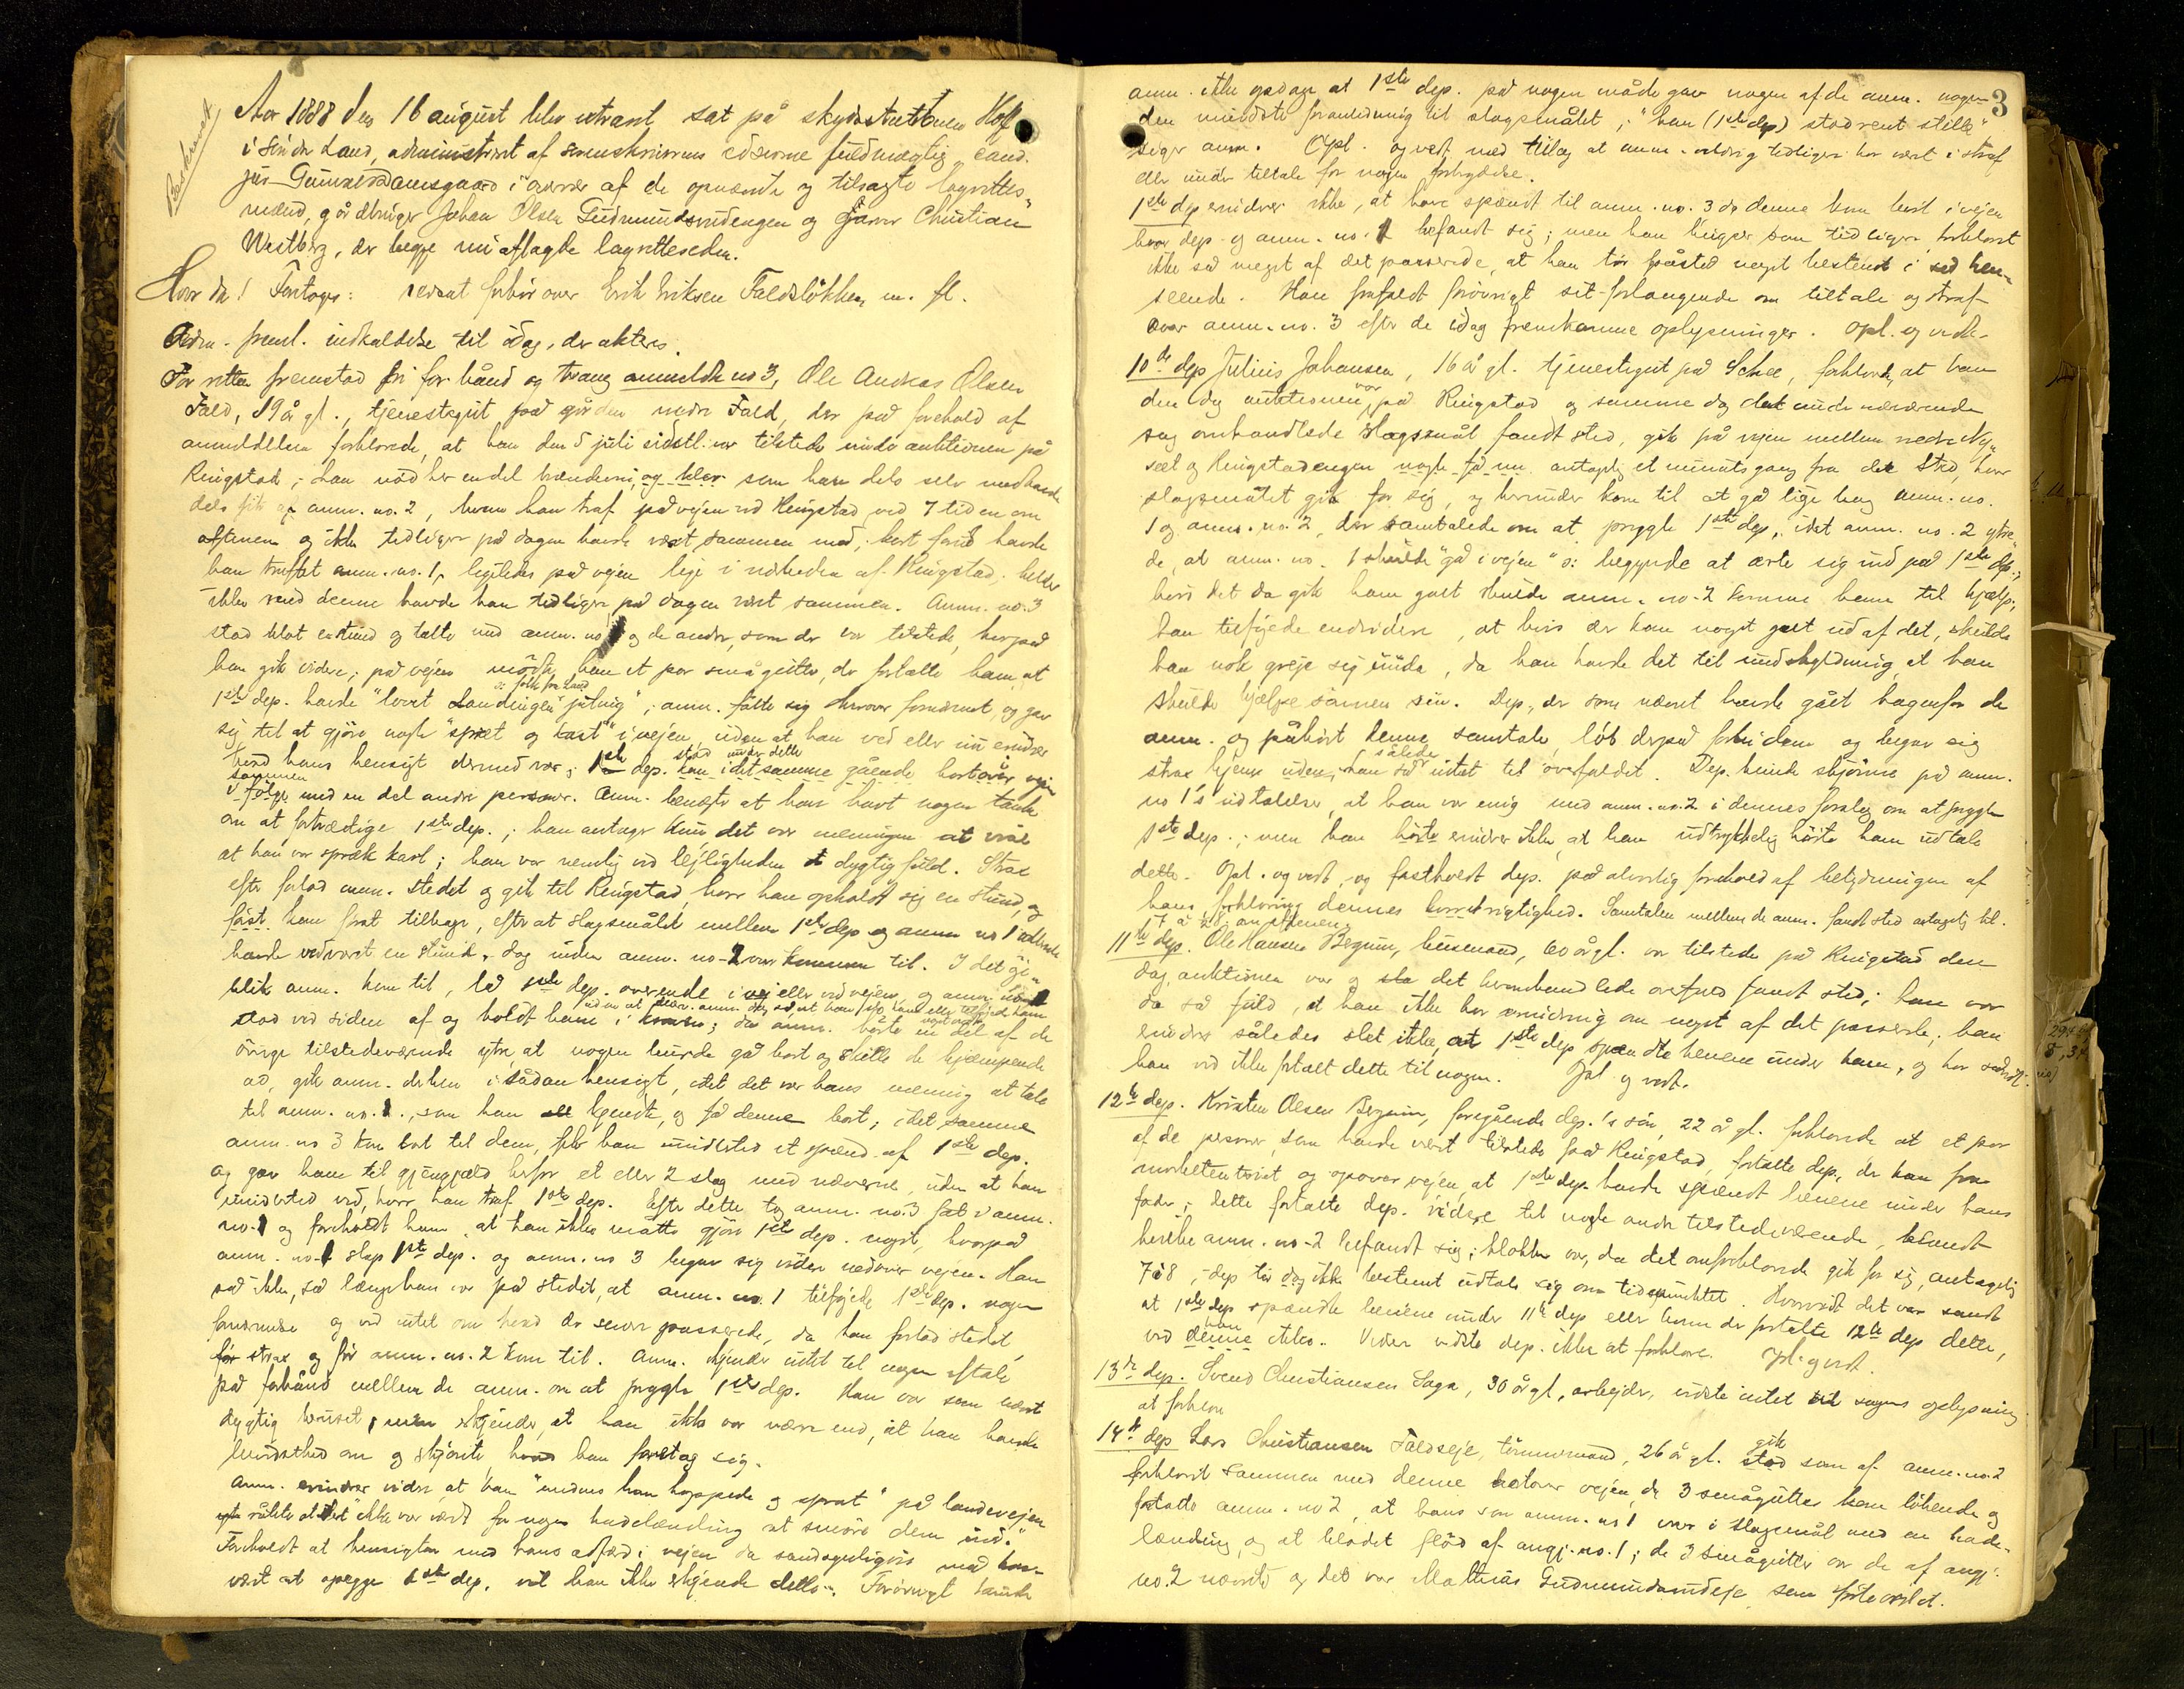 Beskrevet
Aar 1888 den 16 august blev extraret sat på skydsstationen Hof
i Søndre Land, administreret af sorenskriverens edsvorne fuldmægtig cand.
jur. Gunnar Damsgaard i nærvær af de opnævnte og tilsagte lagrettes-
mænd, gårdbruger Johan Olsen Gudmundsrudengen og garver Christian
Westberg, der begge nu aflagde lagretteseden.
Hvor da! Foretoges: retsligt forhør over Erik Eriksen Faldsløkken m. fl.
Adm. freml. indkaldelse til idag, der akteres.
For retten fremstod fri for bånd og tvang anmeldte no 3, Ole Andreas Olsen
Fald, 19 år gl., tjenestegut på gården nedre Fald, der på forehold af
anmeldelsen forklarede, at han den 5 juli sidstl. var tilstede under auktionen på
Ringstad; han nød her endel brændevin og øl som han dels selv medhavde
dels fik af anm. no. 2, hvem han traf på vejen ved Ringstad ved 7 tiden om
aftenen og ikke tidligere på dagen havde været sammen med; kort forud havde
han truffet anm. no. 1, ligeledes på vejen lige i nærheden af Ringstad; heller
ikke med denne havde han tidligere på dagen været sammen. Anm. no. 3
stod blot en stund og talte med anm. no 1 og de andre, som der var tilstede, hvorpå
han gik videre; på vejen mødte han et par smågutter, der fortalte ham, at
ɔ: folk fra Land
1ste dep. havde "lovet Landingen juling"; anm. følte sig herover fornærmet og gav
sig til at gjøre nogle "spræt og kast" i vejen, uden at han ved eller nu erindrer
hvad hans hensigt dermed var; 1ste dep. kom i det samme gående bortover vejen
stod under dette
sammen
i følge med en del andre personer. Anm. benægter at have havt nogen tanke
om at fortrædige 1ste dep.; han antager kun det var meningen at vise
at han var spræk kar; han var nemlig ved lejligheden dygtig fuld. Strax
efter forlod anm. stedet og gik til Ringstad, hvor han opholdt sig en stund, og
først kom frat tilbage, efter at slagsmålet mellem 1ste dep og anm no 1 allerede
havde vedvaret en stund, dog inden anm. no 2 var kommen til. I det øie-
blik anm. kom til, lå 1ste dep. overende i vej eller ved vejen og anm. no 1
stod ved siden af og holdt ham i kraven; da anm. hørte en del af de
uden at dav. anm. dog så, at han slog ham eller tilføjede ham noget ondt
øvrige tilstedeværende ytre, at nogen burde gå bort og skille de kjæmpende
ad, gik anm. derhen i sådan hensigt, idet det var hans mening at tale
til anm. no. 1, som han kjendte, og få denne bort; i det samme
anm. no 3 kom bort til dem, fik han imidlertid et spænd af 1ste dep.
og gav ham til gjengjæld herfor et eller 2 slag med næverne, uden at han
imidlertid ved, hvor han traf 1ste dep. Efter dette tog anm. no. 3 fat i anm.
no. 1 og foreholdt ham, at han ikke måtte gjøre 1ste dep. noget, hvorpå
anm. no. 1 slap 1ste dep. og anm. no 3 begav sig videre nedover vejen. Han
så ikke, så længe han var på stedet, at anm. no. 1 tilføjede 1ste dep. nogen
fornærmelse og ved intet om hvad der senere passerede, da han forlod stedet
strax og før anm. no. 2 kom til. Anm. kjender intet til nogen aftale
på forhånd mellem de anm. om at prygle 1ste dep. Han var som nævnt
dygtig beruset, men erkjender, at han ikke var værre end, at han havde
bevidsthed om og skjønte, hvad han foretog sig.
Anm. erindrer videre, at han "imidens han hoppede og sprat" på landevejen
råbte at det ikke var værdt for nogen hadelænding at smøre dem ind."
Foreholdt at hensigten med hans adfærd i vejen da sandsynligvis må have
været at opægge 1ste dep. vil han ikke erkjende dette. Forøvrigt kunde
3
anm. ikke opdage at 1ste dep. på nogen måde gav nogen af de anm. nogen-
den mindste foranledning til slagsmålet; "han (1ste dep) stod rent stille",
siger anm. Opl. og vedt. med tillæg at anm. aldrig tidligere har været i straf
eller under tiltale for nogen forbrydelse.
1ste dep erindrer ikke, at have spændt til anm. no. 3 da denne kom bort i vejen
hvor dep. og anm. no. 1 befandt sig; men han husker som tidligere forklaret
ikke så meget af det passerede, at han tør påstå noget bestemt i så hen-
seende. Han frafaldt forøvrigt sit forlangende om tiltale og straf
over anm. no. 3 efter de idag fremkomne oplysninger. Opl. og vedt.
10de dep Julius Johansen, 16 år gl. tjenestegut på Schee, forklarede, at han
den dag auktionen var på Ringstad og samme dag det under nærværende
sag omhandlede slagsmål fandt sted, gik på vejen mellem nedre Ny-
sæt og Ringstadengen nogle få m. antagelig et minuts gang fra det sted, hvor
slagsmålet gik for sig, og herunder kom til at gå lige bag anm. no.
1 og anm. no. 2, der samtalede om at prygle 1ste dep., idet anm. no. 2 ytre-
de, at anm. no. 1 skulde "gå i vejen" ɔ: begynde at erte sig ind på 1ste dep.;
hvis det da gik ham galt skulde anm. no. 2 komme ham til hjælp;
han tilføjede endvidere, at hvis der kom noget galt ud af det, skulde
han nok greje sig unda, da han havde det til undskyldning, at han
skulde hjælpe sønnen sin. Dep., der som nævnt havde gået bagenfor de
anm. og påhørt denne samtale, løb derpå forbi dem og begav sig
strax hjem uden, han så således intet til overfaldet. Dep. kunde skjønne på anm.
no 1's udtalelser, at han var enig med anm. no. 2 i dennes forslag om at prygle
1ste dep.; men han hørte erindrer ikke, at han udtrykkelig hørte ham udtale
dette. Opl. og vedt. og fastholdt dep. på alvorlig forehold af betydningen af
hans forklaring dennes korrekrigtighed. Samtalen mellem de anm. fandt sted antagelig kl.
7 à 8 om aftenen.
11te dep. Ole Hansen Bergum, husmand, 60 år gl. var tilstede på Ringstad den
dag auktionen var og det heromhandlede overfald fandt sted; han var
da så fuld, at han ikke har erindring om noget af det passerede; han
erindrer således slet ikke, at 1ste dep spændte benene under ham, og har så vidt
han ved ikke fortalt dette til nogen. Opl. og vedt.
12te dep. Kristen Olsen Bergum, foregående dep.'s søn, 22 år gl. forklarede at et par
af de personer, som havde været tilstede på Ringstad, fortalte dep., der kom fra
og opover vejen, at 1ste dep. havde spændt benene under hans
fader; dette fortalte dep. videre til nogle andre tilstedeværende, blandt
hvilke anm. no. 2 befandt sig; klokken var, da det omforklarede gik for sig, antagelig
7 à 8, dep tør dog ikke bestemt udtale sig om tidspunktet. Hvorvidt det var sandt
at 1ste dep spændte benene under 11te dep eller hvem der fortalte 12te dep dette,
ved han denne ikke. Videre vidste dep. ikke at forklare. Opl. og vedt.
13de dep. Svend Christiansen Saga, 30 år gl, arbejder, vidste intet til sagens oplysning
at forklare
14de dep Lars Christiansen Faldseje, tømmermand, 26 år gl. stod gik som af anm. no. 2
forklaret sammen med denne bortover vejen, da 3 smågutter kom løbende og
fortalte anm. no 2, at hans søn anm. no 1 var i slagsmål med en hade-
lænding, og at blodet flød af angj. no. 1; de 3 smågutter var de af angj.
no. 2 nævnte og det var Mathias Gudmundsrudeje som førte ordet.